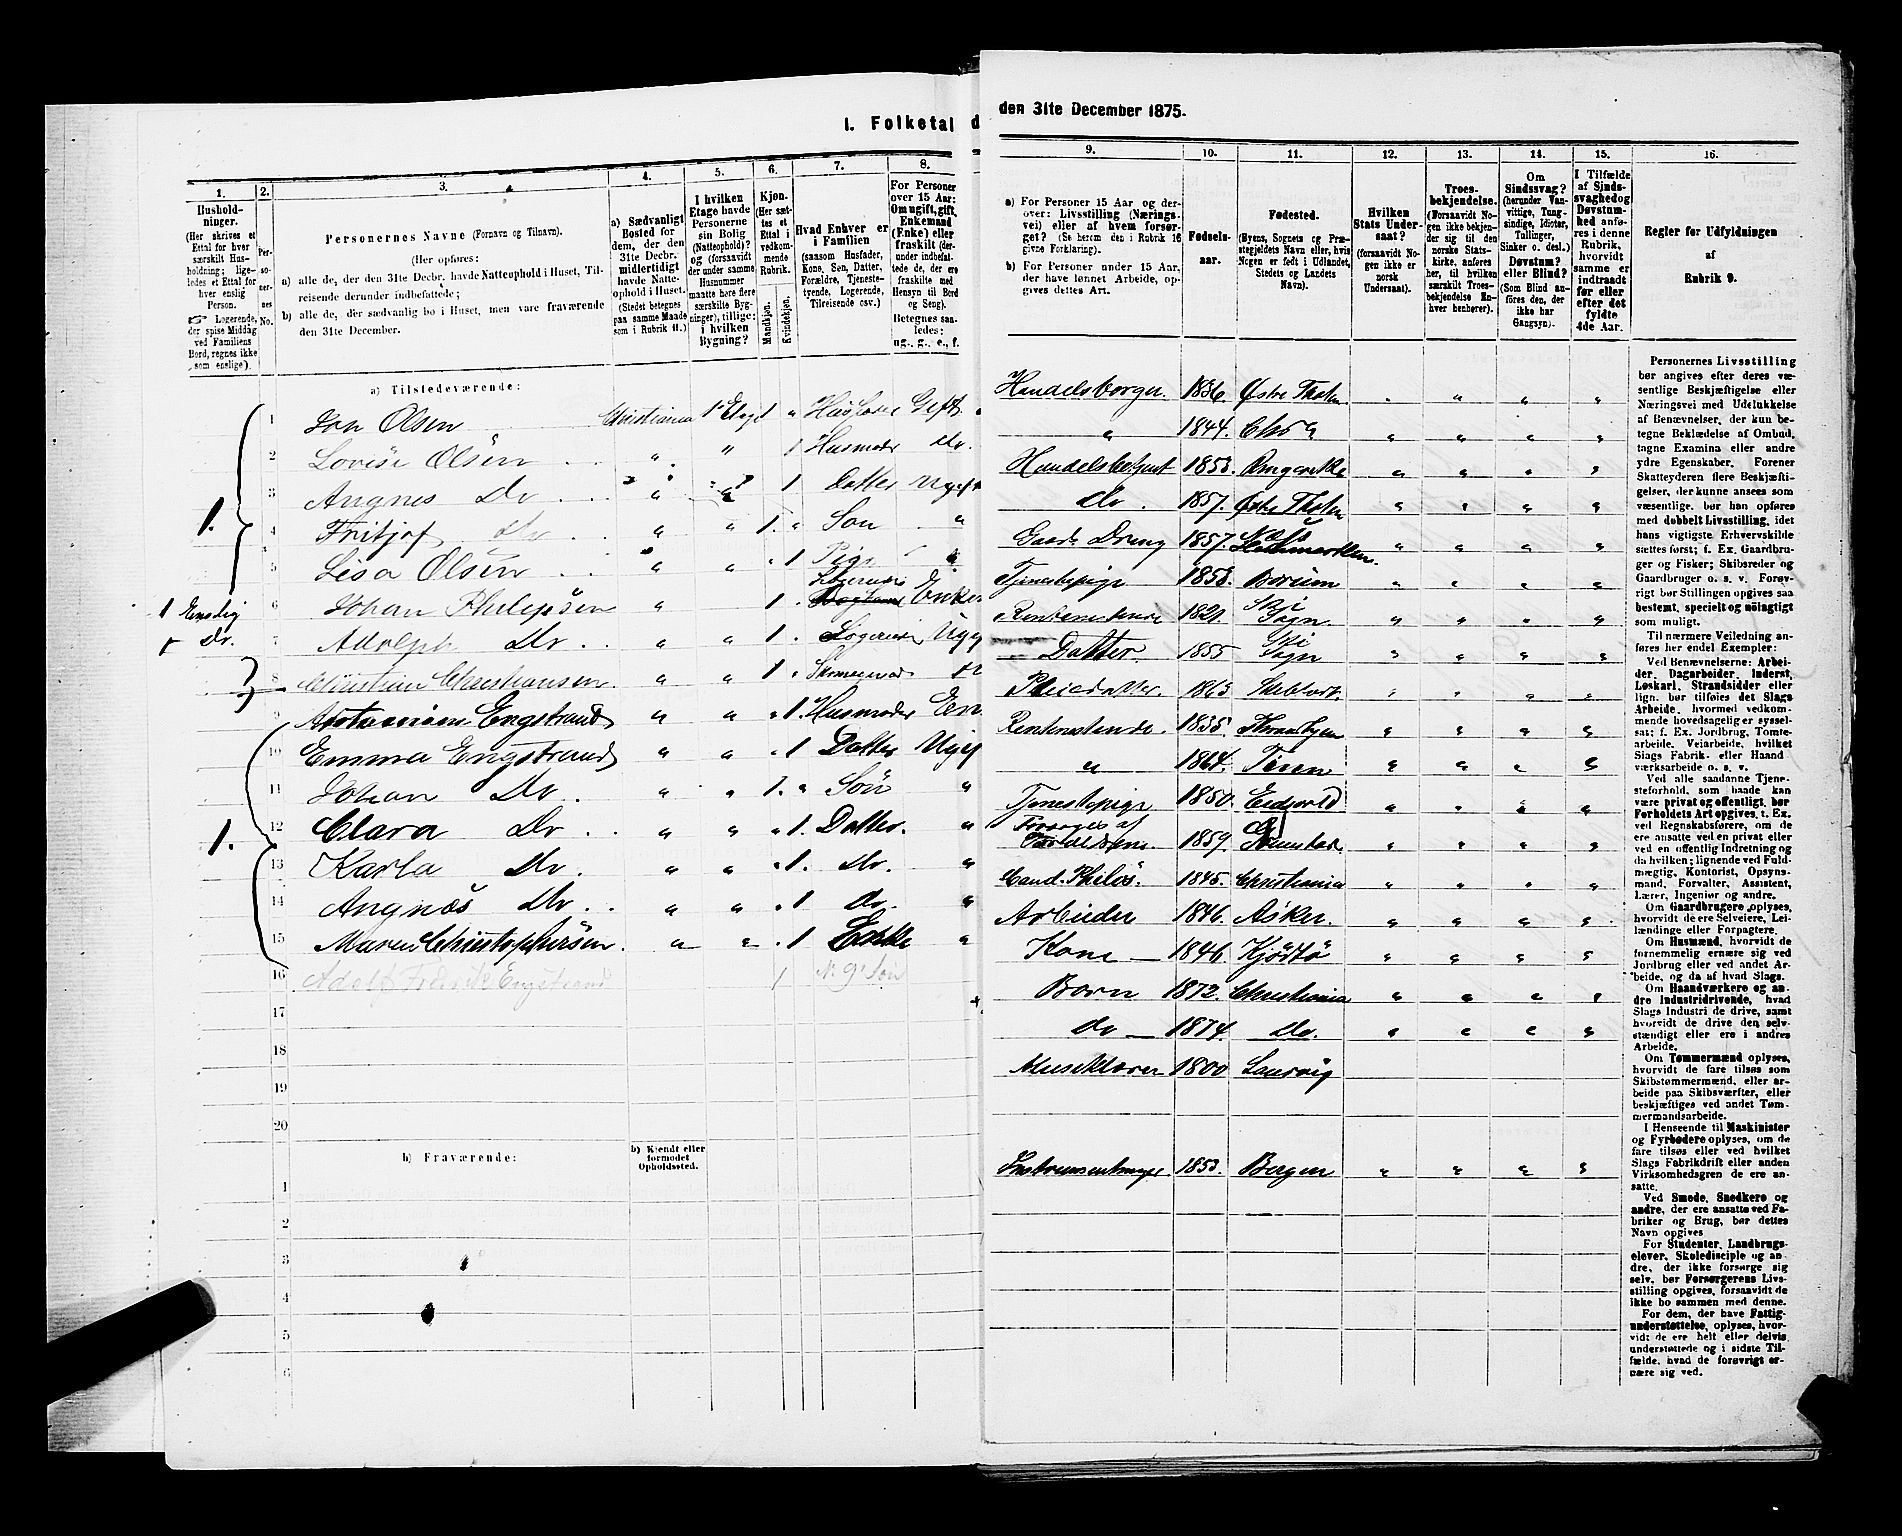 I. Folketal d
1. 2. 3. 4. 5. 6. 7. 8.
Husholdninger. (Her skrives et Ettal for hver særskilt Husholdning; ligeledes et Ettal for hver enslig Person. Logerende, der spise Middag ved Familiens Bord, regnes ikke som enslige).
Personernes No.
Personernes Navne (Fornavn og Tilnavn).
(Her opføres:
a) alle de, der den 31te Decbr. havde Natteophold i Huset, Tilreisende derunder indbefattede;
b) alle de, der sædvanlig bo i Huset, men vare fraværende den 31te December.
a) Sædvanligt Bosted for dem, der den 31te Decbr. midlertidigt havde Natteophold i Huset. (Stedet betegnes paa samme Maade som i Rubrik 11.)
I hvilken Etage havde Personerne sin Bolig (Natteophold)? og (forsaavidt der under samme Husnummer maatte høre flere særskilte Bygninger), tillige: i hvilken Bygning?
Kjøn. (Her sættes et Ettal i vedkommende Rubrik.
Mandkjøn. Kvindekjøn.
Hvad Enhver er i Familien (saasom Husfader, Kone, Søn, Datter, Forældre, Tjenestetyende, Logerende, Tilreisende osv.)
For Personer over 15 Aar: Om ugift, gift, Enkemand (Enke) eller fraskilt (derunder indbefattede de, der ere fraskilte med Hensyn til Bord og Seng). Betegnes saaledes: ug., g., e., f.
a) Tilstedeværende:
1 Jon Olsen Christiania 1ste Etage 1 " Husfader Gift
2 Lovise Olsen " " 1 Husmoder do.
3 Angnes Do " " 1 Datter Ugift
4 Fritjof do " " 1. " Søn "
5 Lisa Olsen " " 1 Pige "
1 Enslig 6 Johan Philipsen " 1. Logerende Enke
1 Do. 7 Adolph Do " " 1. Logerende Ug
8 Christian Christiansen " " 1
9 Engstrand " " " 1. Husmoder En
10 Emma Engstrand " " 1 Datter Ugif
11 Johan Do. " " 1. " Søn "
1. 12 Clara Do " " " 1. Datter. "
13 Karla Do. " " " 1. Do. "
14 Angnes Do. " " " 1 do. "
15 Maren Christophersen. " " . 1 Enke "
16 Adolf Fredrik Engstrand 1 No 9s Søn
17
18
19
20
b) Fraværende:
b) Kjendt eller formodet Opholdssted.
1
2
3
4
5
6
den 31te December 1875.
9. 10. 11. 12. 13. 14. 15. 16.
a) For Personer 15 Aar og derover: Livsstilling (Næringsvei) eller af hvem forsørget? (Se herom den i Rubrik 16 givne Forklaring).
b) For Personer under 15 Aar, der have lønnet Arbeide, opgives dettes Art.
Fødselsaar.
Fødested. (Byens, Sognets og Præstegjeldets Navn eller, hvis Nogen er født i Udlandet, Stedets og Landets Navn).
Hvilken Stats Undersaat? (forsaavidt Nogen ikke er norsk Undersaat).
Troesbekjendelse. (Forsaavidt Nogen ikke bekjender sig til den norske Statskirke, anføres her, til hvilken særskilt Troesbekjendelse Enhver henhører).
Om Sindssvag? (herunder Vanvittige, Tungsindige, Idioter, Tullinger, Sinker o. desl.) Døvstum? eller Blind? (Som Blind anføres den, der ikke har Gangsyn).
I Tilfælde af Sindssvaghed og Døvstumhed anføres i denne Rubrik, hvorvidt samme er indtraadt før eller efter det fyldte 4de Aar.
Regler for Udfyldningen af Rubrik 9.
Handelsborger 1836. Østre Thoten
" 1844.
Handelsbetjent 1853.
do. 1857. Østre Thoten
Gaards Dreng 1857.
Tjenestepige 1853.
1821. Ski Sogn
Datter. 1855 Ski Sogn
Pleiedatter. 1863
1835.
" 1864.
Tjenestepige 1850. Eidsvold
Forsørges af Forældrene. 1859.
Cand. Philos. 1845. Christiania
Arbeider 1846. Asker.
Kone 1846.
Børn 1872. Christiania
do 1874. Do.
Musiklærer 1800 Laurvig
Instrumentmager 1853. Bergen
Personernes Livsstilling bør angives efter deres væsentlige Beskjæftigelse eller Næringsvei med Udelukkelse af Benævnelser, der kun betegne Beklædelse af Ombud, tagne Examina eller andre ydre Egenskaber. Forener Skatteyderen flere Beskjæftigelser, der kunne ansees som væsentlige, bør han opføres med dobbelt Livsstilling, idet hans vigtigste Erhvervskilde sættes først; f. Ex. Gaardbruger og Fisker; Skibsreder og Gaardbruger o. s. v. Forøvrigt bør Stillingen opgives saa bestemt, specielt og nøiagtigt som muligt.
Til nærmere Veiledning anføres her endel Exempler:
Ved Benævnelserne: Arbeider, Dagarbeider, Inderst, Løskarl, Strandsidder eller lign. bør tilføies det Slags Arbeide, hvormed vedkommende hovedsagelig er sysselsat; f. Ex. Jordbrug, Tomtearbeide, Veiarbeide, hvilket Slags Fabrik- eller Haandværksarbeide o. s. v.
Ved alle saadanne Tjenesteforhold, som baade kan være privat og offentligt, bør Forholdets Art opgives, t. Ex. ved Regnskabsførere, om de ere ansatte ved en privat eller ved en offentlig Indretning og da hvilken; lignende ved Fuldmægtig, Kontorist, Opsynsmand, Forvalter, Assistent, Lærer, Ingeniør og andre.
Om Gaardbrugere oplyses, hvorvidt de ere Selveiere, Leilændinge eller Forpagtere.
Om Husmænd, hvorvidt de fornemmelig ernære sig ved Jordbrug eller ved andet Arbeide, og da af hvad Slags.
Om Haandværkere og andre Industridrivende, hvad Slags Industri de drive, samt hvorvidt de drive den selvstændigt eller ere i andres Arbeide.
Om Tømmermænd oplyses, hvorvidt de fare tilsøs som Skibstømmermænd, eller arbeide paa Skibsværfter, eller beskjæftiges ved andet Tømmermandsarbeide.
I Henseende til Maskinister og Fyrbødere oplyses, om de fare tilsøs eller ved hvilket Slags Fabrikdrift eller anden Virksomhedsgren de ere ansatte.
Ved Smede, Snedkere og andre, der ere ansatte ved Fabriker og Brug, bør dettes Navn opgives
For Studenter, Landbrugselever, Skoledisciple og andre, der ikke forsørge sig selv, bør Forsørgerens Livsstilling opgives, forsaavidt de ikke bo sammen med denne.
For dem, der have Fattigunderstøttelse, oplyses, hvorvidt de ere helt eller delvis understøttede og i sidste Tilfælde, hvad de forøvrigt ernære sig ved.